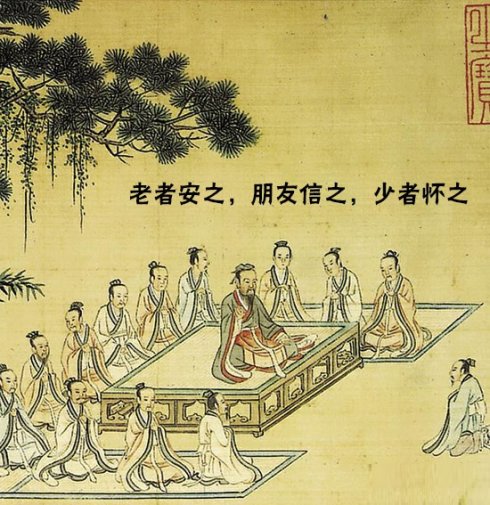 老者安之，朋友信之，少者怀之